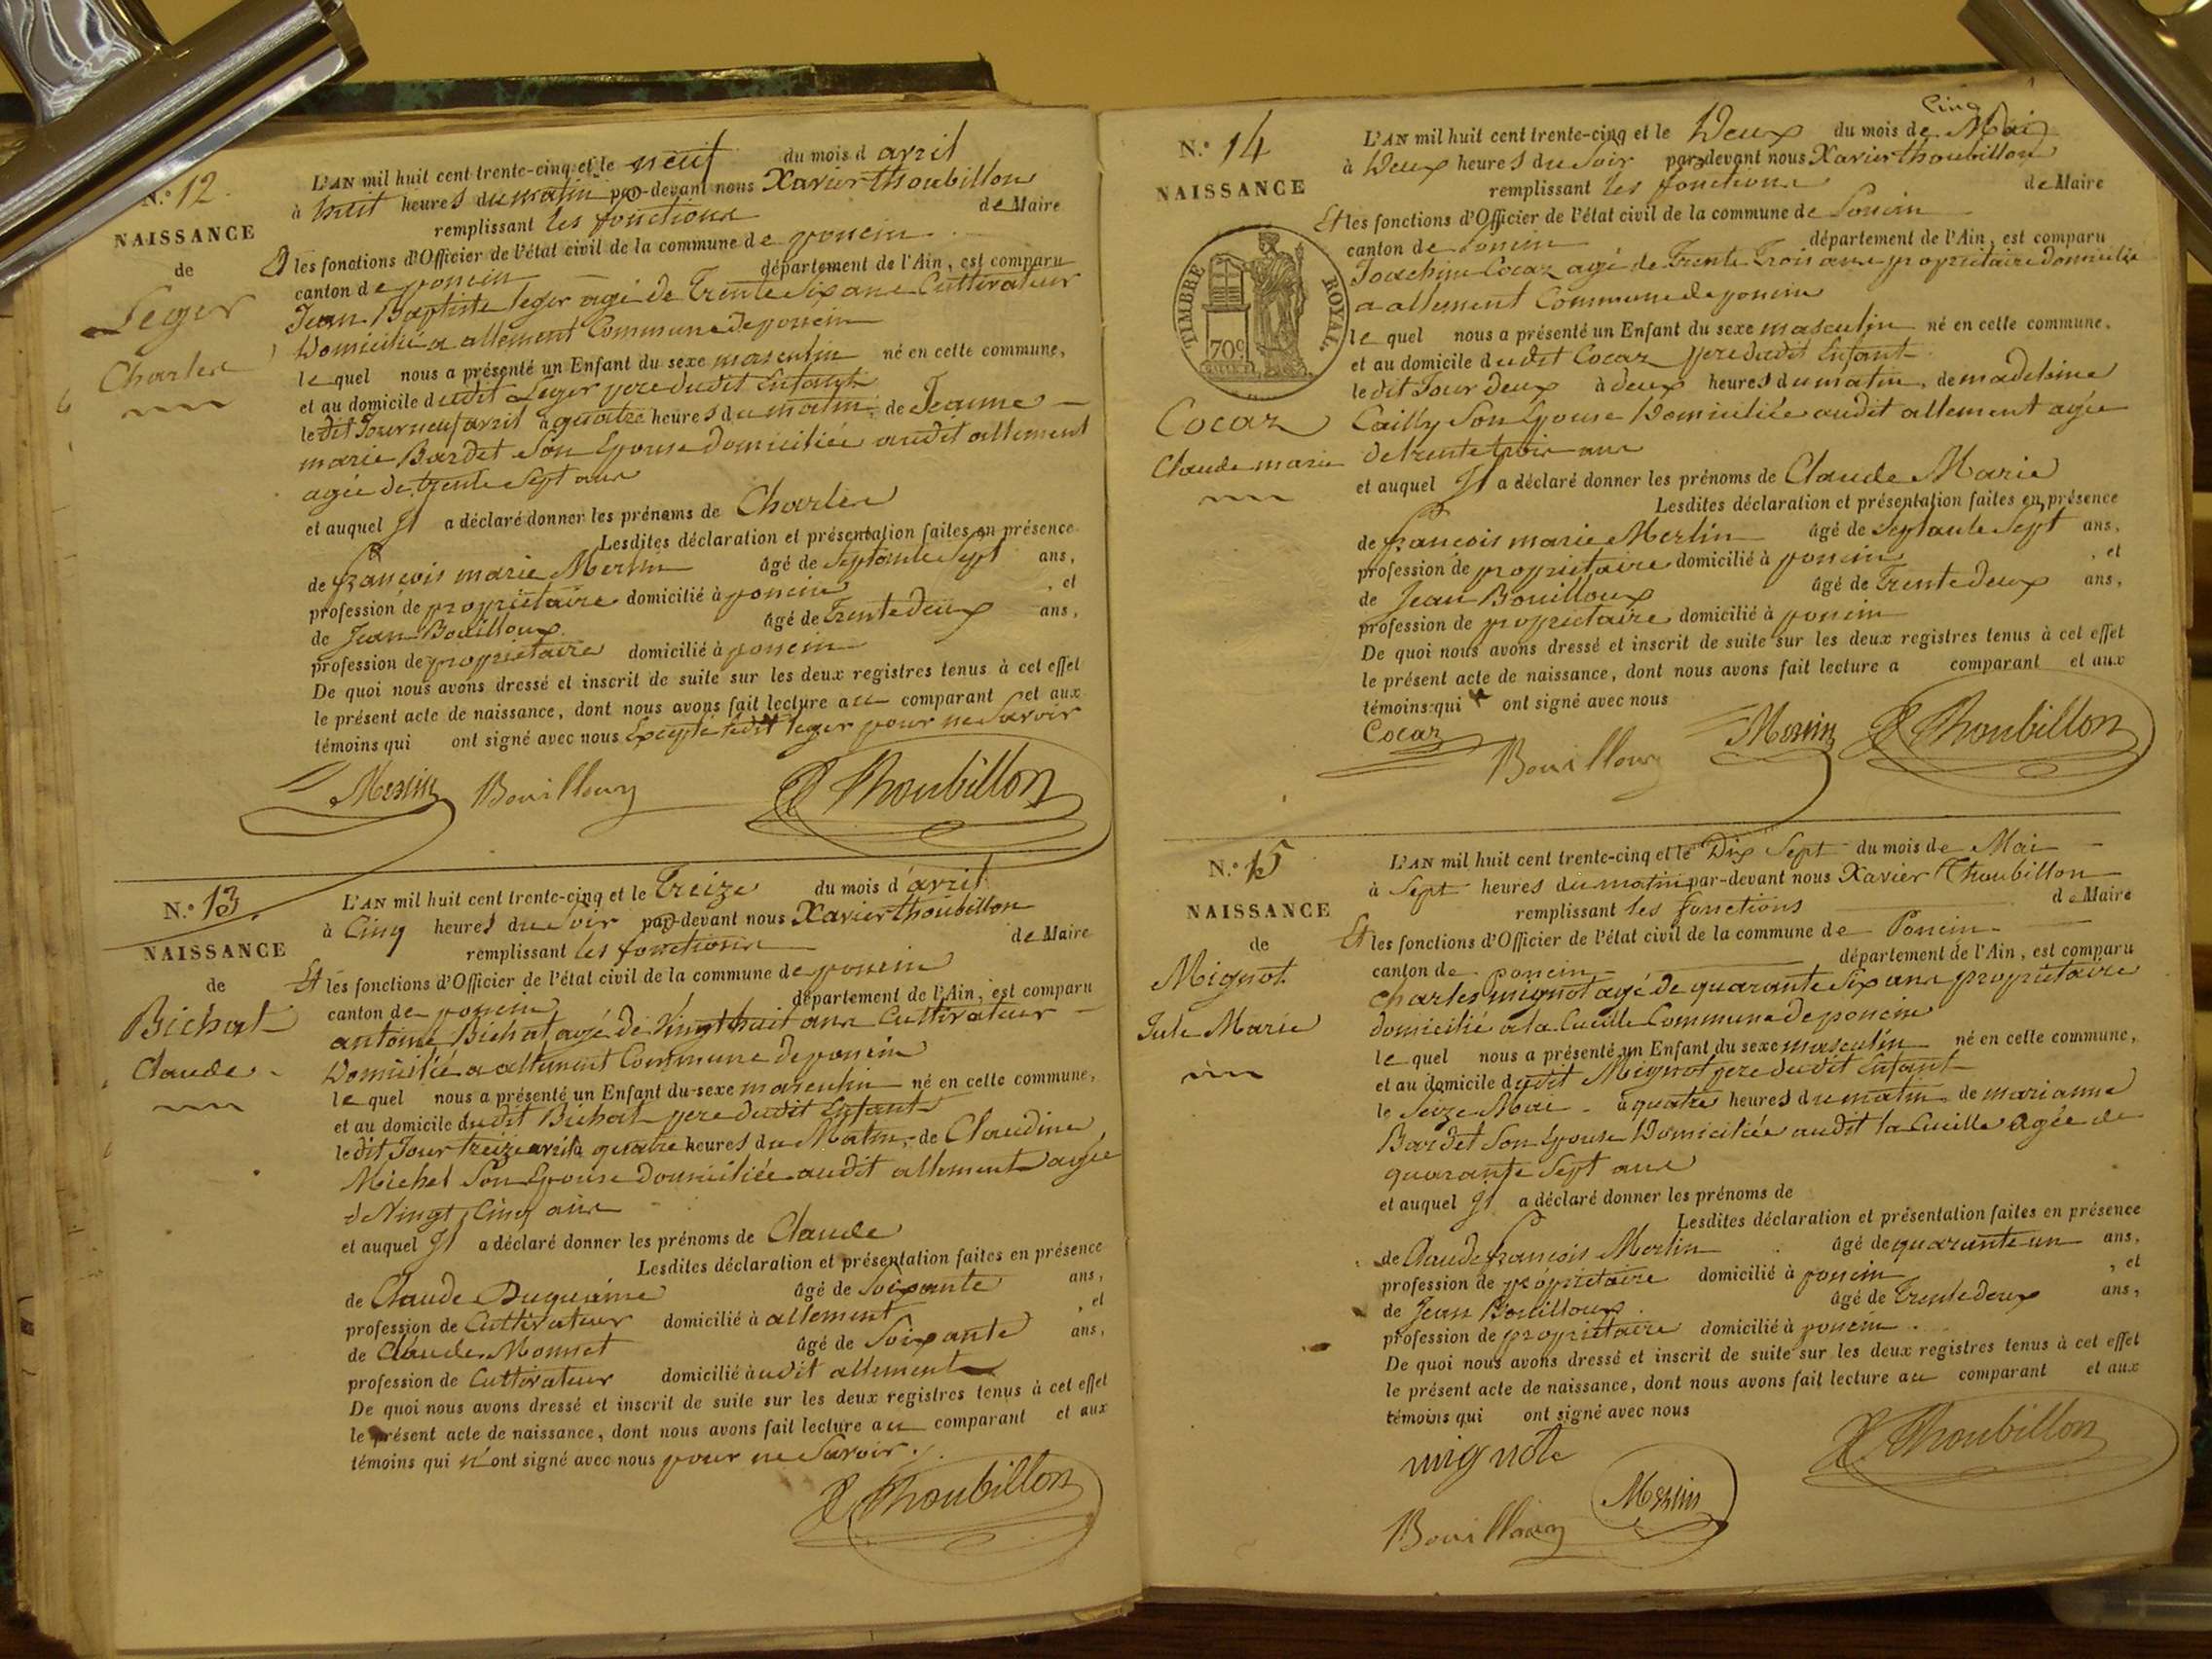 N.° 12
NAISSANCE
de
Leger
Charles
L'AN mil huit cent trente-cinq et le neuf du mois d avril
à huit heures du matin par-devant nous Xavier thoubillon
remplissant les fonctions de Maire
Et les fonctions d'Officier de l'état civil de la commune de poncin
canton de poncin département de l'Ain, est comparu
Jean Baptiste leger agé de Trente Six ans Cultivateur
Domicilié a allement Commune de poncin
le quel nous a présenté un Enfant du sexe masculin né en cette commune,
et au domicile dudit Leger pere dudit Enfant
ledit Jour neuf avril à quatre heures du matin, de Jeanne
marie Bardet Son Epouse domiciliée audit allement
agée de trente Sept ans
et auquel Il a déclaré donner les prénoms de Charles
Lesdites déclaration et présentation faites en présence
de françois marie Merlin âgé de Septante Sept ans,
profession de propriétaire domicilié à poncin , et
de Jean Bouilloux âgé de Trente deux ans,
profession de propriétaire domicilié à poncin
De quoi nous avons dressé et inscrit de suite sur les deux registres tenus à cet effet
le présent acte de naissance, dont nous avons fait lecture au comparant et aux
témoins qui ont signé avec nous Excepté ledit leger pour ne Savoir
Merlin Bouilloux X Thoubillon
N.° 13
NAISSANCE
de
Bichat
Claude
L'AN mil huit cent trente-cinq et le Treize du mois d'avril
à Cinq heures du Soir par-devant nous Xavier thoubillon
remplissant les fonctions de Maire
Et les fonctions d'Officier de l'état civil de la commune de poncin
canton de poncin département de l'Ain, est comparu
antoine Bichat agé de Vingt huit ans Cultivateur
Domicilié a allement Commune de poncin
le quel nous a présenté un Enfant du sexe masculin né en cette commune,
et au domicile dudit Bichat pere dudit Enfant
ledit Jour treize avril à quatre heures du Matin, de Claudine
Michel Son Epouse Domiciliée audit allement agée
de Vingt Cinq ans
et auquel Il a déclaré donner les prénoms de Claude
Lesdites déclaration et présentation faites en présence
de Claude âgé de Soixante ans,
profession de Cultivateur domicilié à allement , et
de Claude Monnet âgé de Soixante ans,
profession de Cultivateur domicilié à udit allement
De quoi nous avons dressé et inscrit de suite sur les deux registres tenus à cet effet
le présent acte de naissance, dont nous avons fait lecture au comparant et aux
témoins qui n'ont signé avec nous pour ne Savoir
X Thoubillon
N.° 14
NAISSANCE
TIMBRE ROYAL.
70c
Cocaz
Claude marie
Cinq
L'AN mil huit cent trente-cinq et le Deux du mois de Mai
à Deux heures du Soir par-devant nous Xavier thoubillon
remplissant les fonctions de Maire
Et les fonctions d'Officier de l'état civil de la commune de Poncin
canton de Poncin département de l'Ain, est comparu
Joachim Cocaz agé de Trente Trois ans propriétaire domicilié
a allement Commune de poncin
le quel nous a présenté un Enfant du sexe masculin né en cette commune,
et au domicile dudit Cocaz pere dudit Enfant
ledit Jour deux à deux heures du matin, de madeleine
Cailly Son Epouse Domiciliée audit allement agée
de trente trois ans
et auquel Il a déclaré donner les prénoms de Claude Marie
Lesdites déclaration et présentation faites en présence
de françois marie Merlin âgé de Septante Sept ans,
profession de propriétaire domicilié à poncin , et
de Jean Bouilloux âgé de Trente deux ans,
profession de propriétaire domicilié à poncin
De quoi nous avons dressé et inscrit de suite sur les deux registres tenus à cet effet
le présent acte de naissance, dont nous avons fait lecture a comparant et aux
témoins qui ont signé avec nous
Cocaz Bouilloux Merlin X Thoubillon
N.° 15
NAISSANCE
de
Mignot
Jule Marie
L'AN mil huit cent trente-cinq et le Dix Sept du mois de Mai
à Sept heures du matin par-devant nous Xavier Thoubillon
remplissant les fonctions de Maire
Et les fonctions d'Officier de l'état civil de la commune de Poncin
canton de poncin département de l'Ain, est comparu
Charles mignot agé de quarante Six ans propriétaire
domicilié a la Cueille Commune de poncin
le quel nous a présenté un Enfant du sexe masculin né en cette commune,
et au domicile dudit Mignot pere dudit Enfant
le Seize Mai à quatre heures du matin de marianne
Bardet Son Epouse Domiciliée audit la Cueille Agée de
quarante Sept ans
et auquel Il a déclaré donner les prénoms de
Lesdites déclaration et présentation faites en présence
de Claude françois Merlin âgé de quarante un ans,
profession de propriétaire domicilié à poncin , et
de Jean Bouilloux âgé de Trente deux ans,
profession de propriétaire domicilié à poncin
De quoi nous avons dressé et inscrit de suite sur les deux registres tenus à cet effet
le présent acte de naissance, dont nous avons fait lecture au comparant et aux
témoins qui ont signé avec nous
mignot X Thoubillon
Bouilloux Merlin